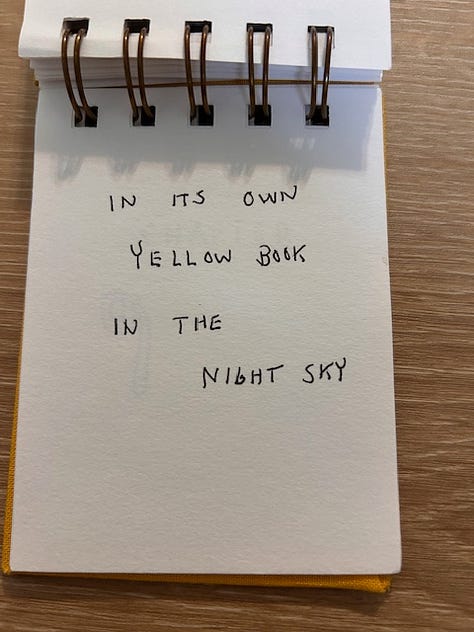 IN ITS OWN
YELLOW BOOK
IN THE
NIGHT SKY